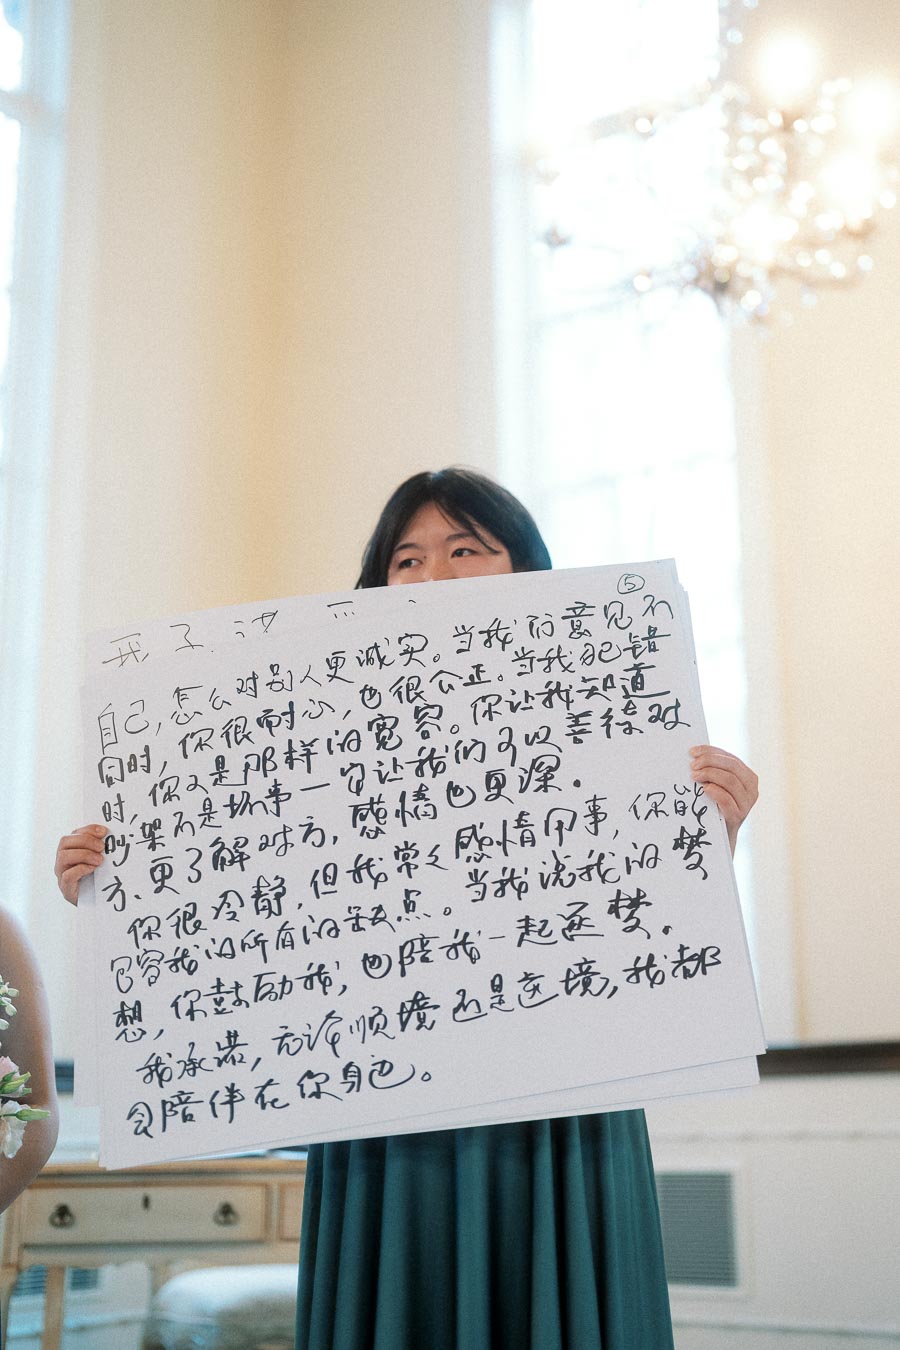 ⑤
自己，怎么对别人更诚实。当我们意见不
同时，你很耐心，也很公正。当我犯错
时，你又是那样的宽容。你让我知道
吵架不是坏事一字让我们可以善待对
方、更了解对方，感情也更深．
你很冷静，但我常々感情用事，你能
包容我的所有的缺点。当我说我的梦
想，你鼓励我，也陪我一起逐梦．
我承诺，无论顺境还是逆境，我都
会陪伴在你身边。